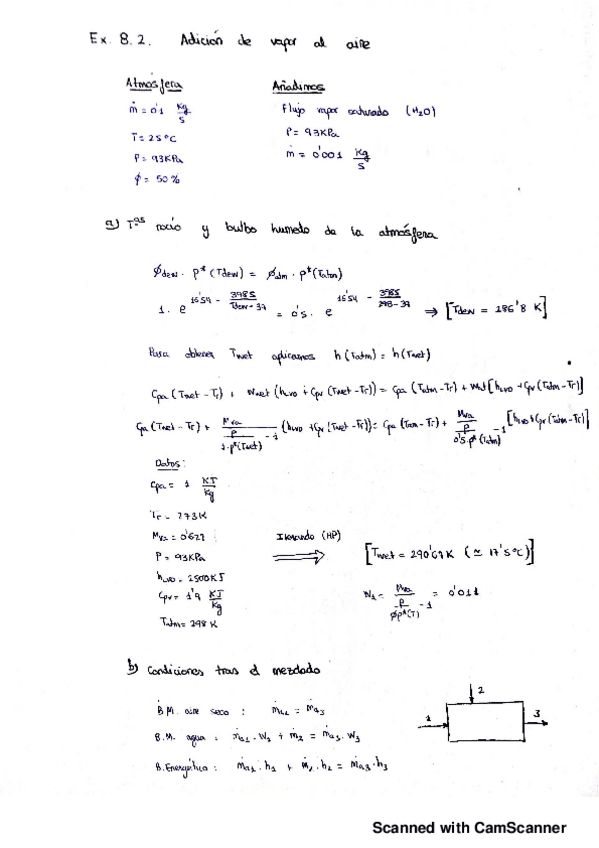 Ex. 8.2. Adición de vapor al aire
Atmósfera
ṁ = 0'1 Kg/s
T = 25°C
P = 93KPa
ϕ = 50%
Añadimos
Flujo vapor saturado (H₂O)
P = 93KPa
ṁ = 0'001 Kg/s
a) Tªs rocío y bulbo humedo de la atmósfera
ϕdew · P*(Tdew) = ϕatm · P*(Tatm)
1 · e^(16'54 - 3985/(Tdew - 39)) = 0'5 · e^(16'54 - 3985/(298 - 39)) ⇒ [Tdew = 286'8 K]
Para obtener Twet aplicamos h(Tatm) = h(Twet)
Cpa(Twet - Tr) + Wwet(hlvo + Cpv(Twet - Tr)) = Cpa(Tatm - Tr) + Wat[hlvo + Cpv(Tatm - Tr)]
Cpa(Twet - Tr) + Mva/(P/(1·P*(Twet)) - 1) (hlvo + Cpv(Twet - Tr)) = Cpa(Tatm - Tr) + Mva/(P/(0'5·P*(Tatm)) - 1) [hlvo + Cpv(Tatm - Tr)]
Datos:
Cpa = 1 KJ/Kg
Tr = 273K
Mva = 0'622
P = 93KPa
hlvo = 2500KJ
Cpv = 1'9 KJ/Kg
Tatm = 298K
Iterando (HP)
[Twet = 290'67K (≃ 17'5°C)]
W₁ = Mva/(P/(ϕP*(T)) - 1) = 0'011
b) Condiciones tras el mezclado
B.M. aire seco : ṁa1 = ṁa3
B.M. agua : ṁa1 · W₁ + ṁ₂ = ṁa3 · W₃
B. Energético : ṁa1 · h₁ + ṁ₂ · h₂ = ṁa3 · h₃
1
2
3
Scanned with CamScanner